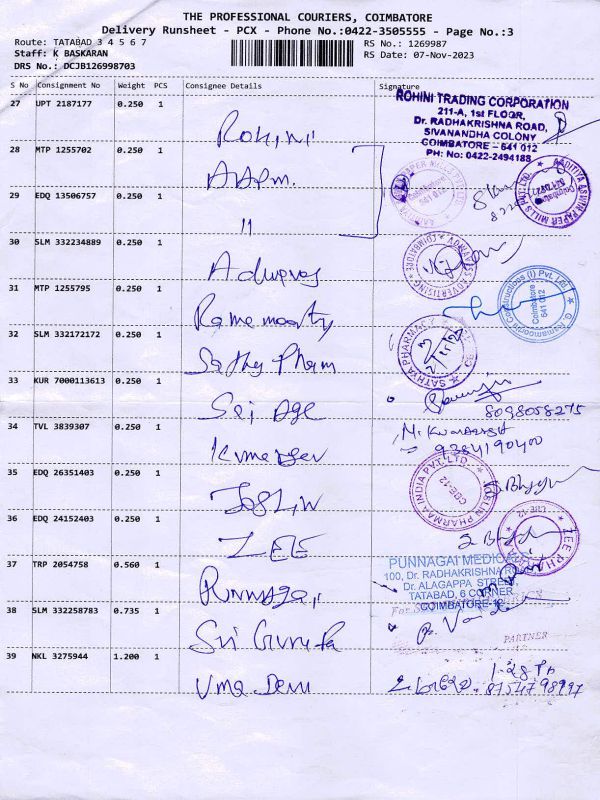 THE PROFESSIONAL COURIERS, COIMBATORE
Delivery Runsheet - PCX - Phone No.:0422-3505555 - Page No.:3
Route: TATABAD 3 4 5 6 7
RS No.: 1269987
Staff: K BASKARAN
RS Date: 07-Nov-2023
DRS No.: DCJB126998703
S No Consignment No Weight PCS Consignee Details Signature
27 UPT 2187177 0.250 1 Rohini
ROHINI TRADING CORPORATION
211-A, 1st FLOOR,
Dr. RADHAKRISHNA ROAD,
SIVANANDHA COLONY
COIMBATORE - 641 012
PH: No: 0422-2494188
28 MTP 1255702 0.250 1 AAPM.
AADITIYA ASWIN PAPER MILLS PVT. LTD.
Coimbatore
641 012
29 EDQ 13506757 0.250 1 "
30 SLM 332234889 0.250 1
ADWAYS ADVERTISING
COIMBATORE
31 MTP 1255795 0.250 1 Ramamoorthy
G Ramamoorthi Constructions (I) Pvt. Ltd.
Coimbatore
641 012
32 SLM 332172172 0.250 1 Sathya Pharm
SATHYA PHARMACY
33 KUR 7000113613 0.250 1 Sri
8098058275
34 TVL 3839307 0.250 1
9384190400
35 EDQ 26351403 0.250 1 Joslin
JOSLIN PHARMA INDIA PVT. LTD.
CBE-12
36 EDQ 24152403 0.250 1 ZEE
ZEE PHARMA
CBE-12
37 TRP 2054758 0.560 1 Punnagai
PUNNAGAI MEDICAL
100, Dr. RADHAKRISHNA ROAD
Dr. ALAGAPPA STREET
TATABAD, 6 CORNER
COIMBATORE-12
38 SLM 332258783 0.735 1 Sri Guru
PARTNER
39 NKL 3275944 1.200 1 Uma Devi